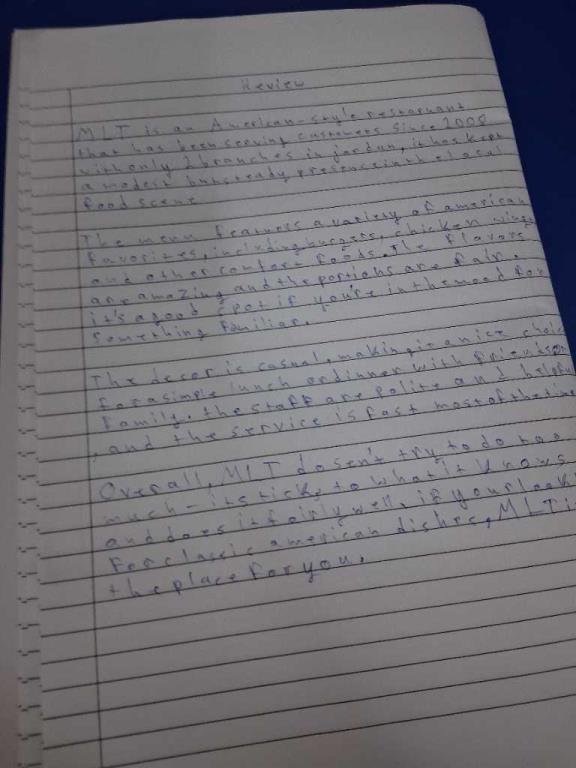 Review
MLT is an American-style restaurant
that has been serving customers since 2008
with only 2 branches in jordan, it has kept
a modest but steady presence in the local
food scene
The menu features a variety of american
favorites, including burgers, chicken wings
and other comfort foods. The flavors
are amazing and the portions are fair.
it's a good spot if you're in the mood for
something familiar.
The decor is casual, making it a nice choice
for a simple lunch or dinner with friends or
family. the staff are polite and helpful
, and the service is fast most of the time
Overall, MLT dosen't try to do too
much - it sticks to what it knows
and does it fairly well, if your looki
for classic american dishes, MLT i
the place for you.